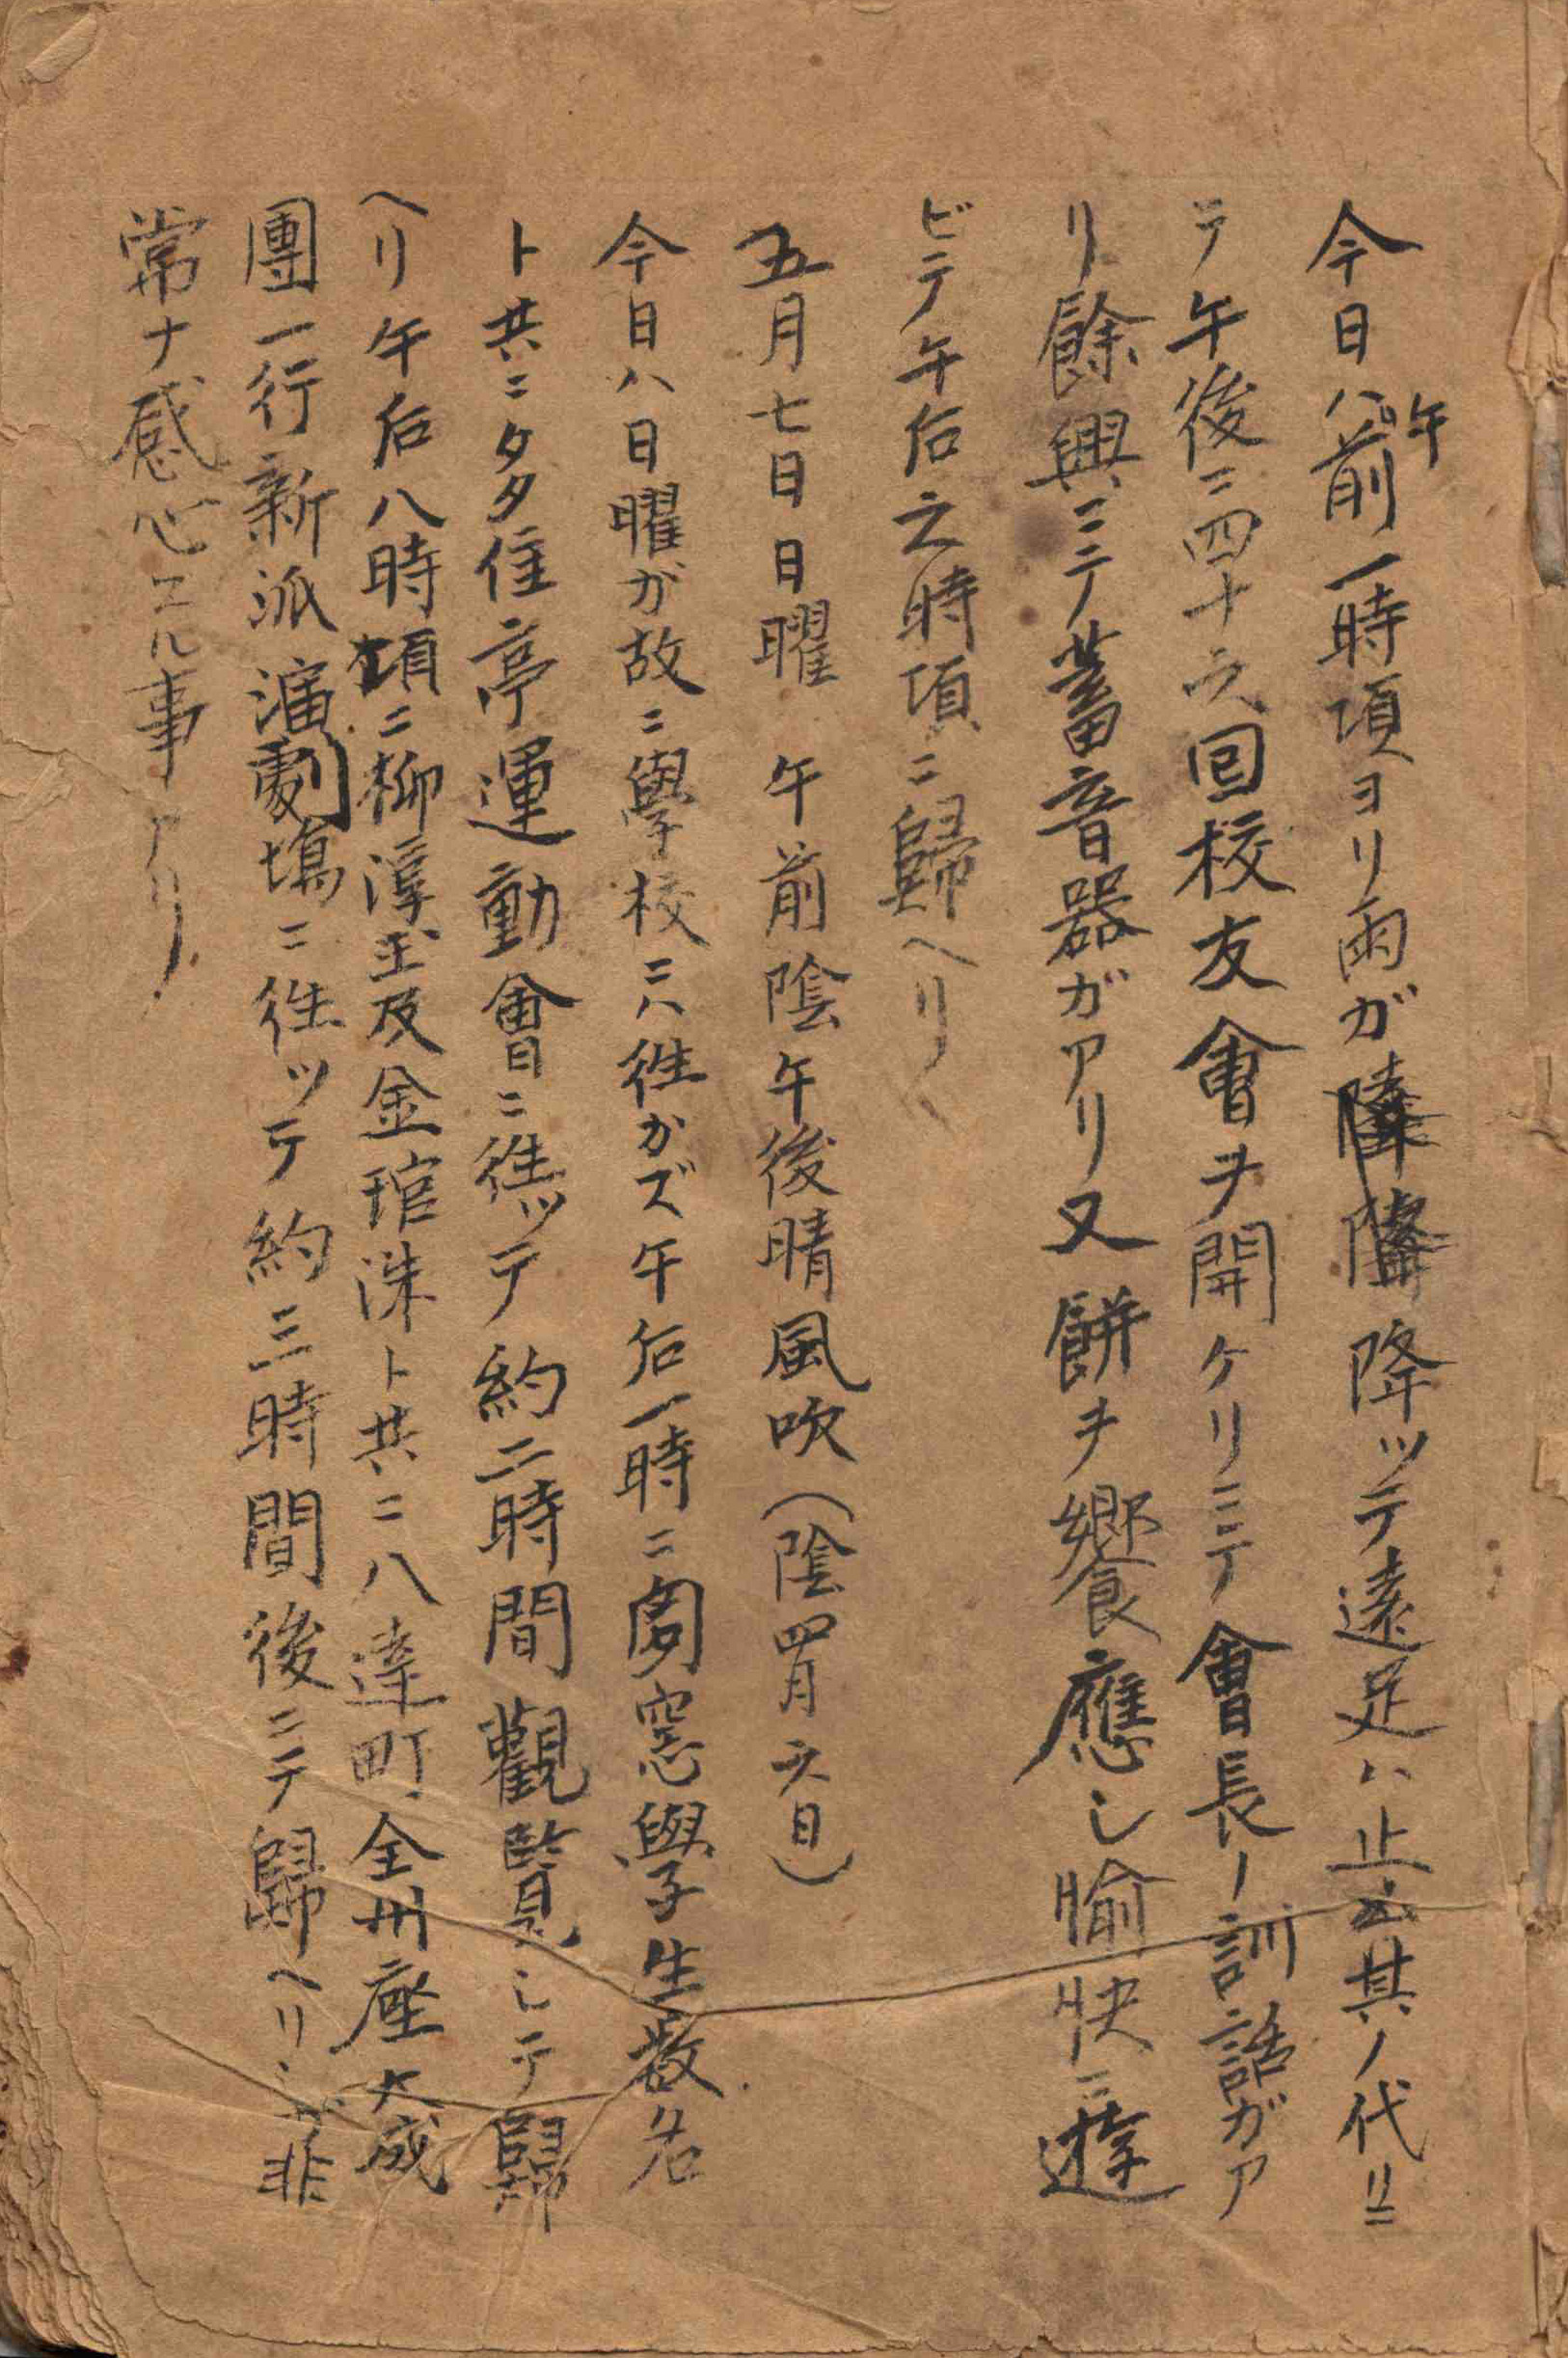 今日ハ午前一時項ヨリ雨ガ降ッテ遠足ハ止厶其ノ代リニ
テ午後ニ四十六回校友會ヲ開ケリニテ會長ノ訓話ガア
リ餘興ニテ蓄音器ガアリ又餅ヲ饗應シ愉快ニ遊
ビテ午后六時項ニ歸ヘリ
五月七日日曜 午前陰午後晴風吹(陰四月六日)
今日ハ日曜ガ故ニ學校ニハ徃カズ午后一時ニ同窓學生数名
ト共ニ多佳亭運動會ニ徃ッテ約二時間觀覽シテ歸
ヘリ午后八時頃ニ柳漢玉及金琯洙ト共ニ八達町全州座大成
團一行新派演劇塲ニ徃ッテ約三時間後ニテ歸ヘリシガ非
常ナ感心ニル事アリ